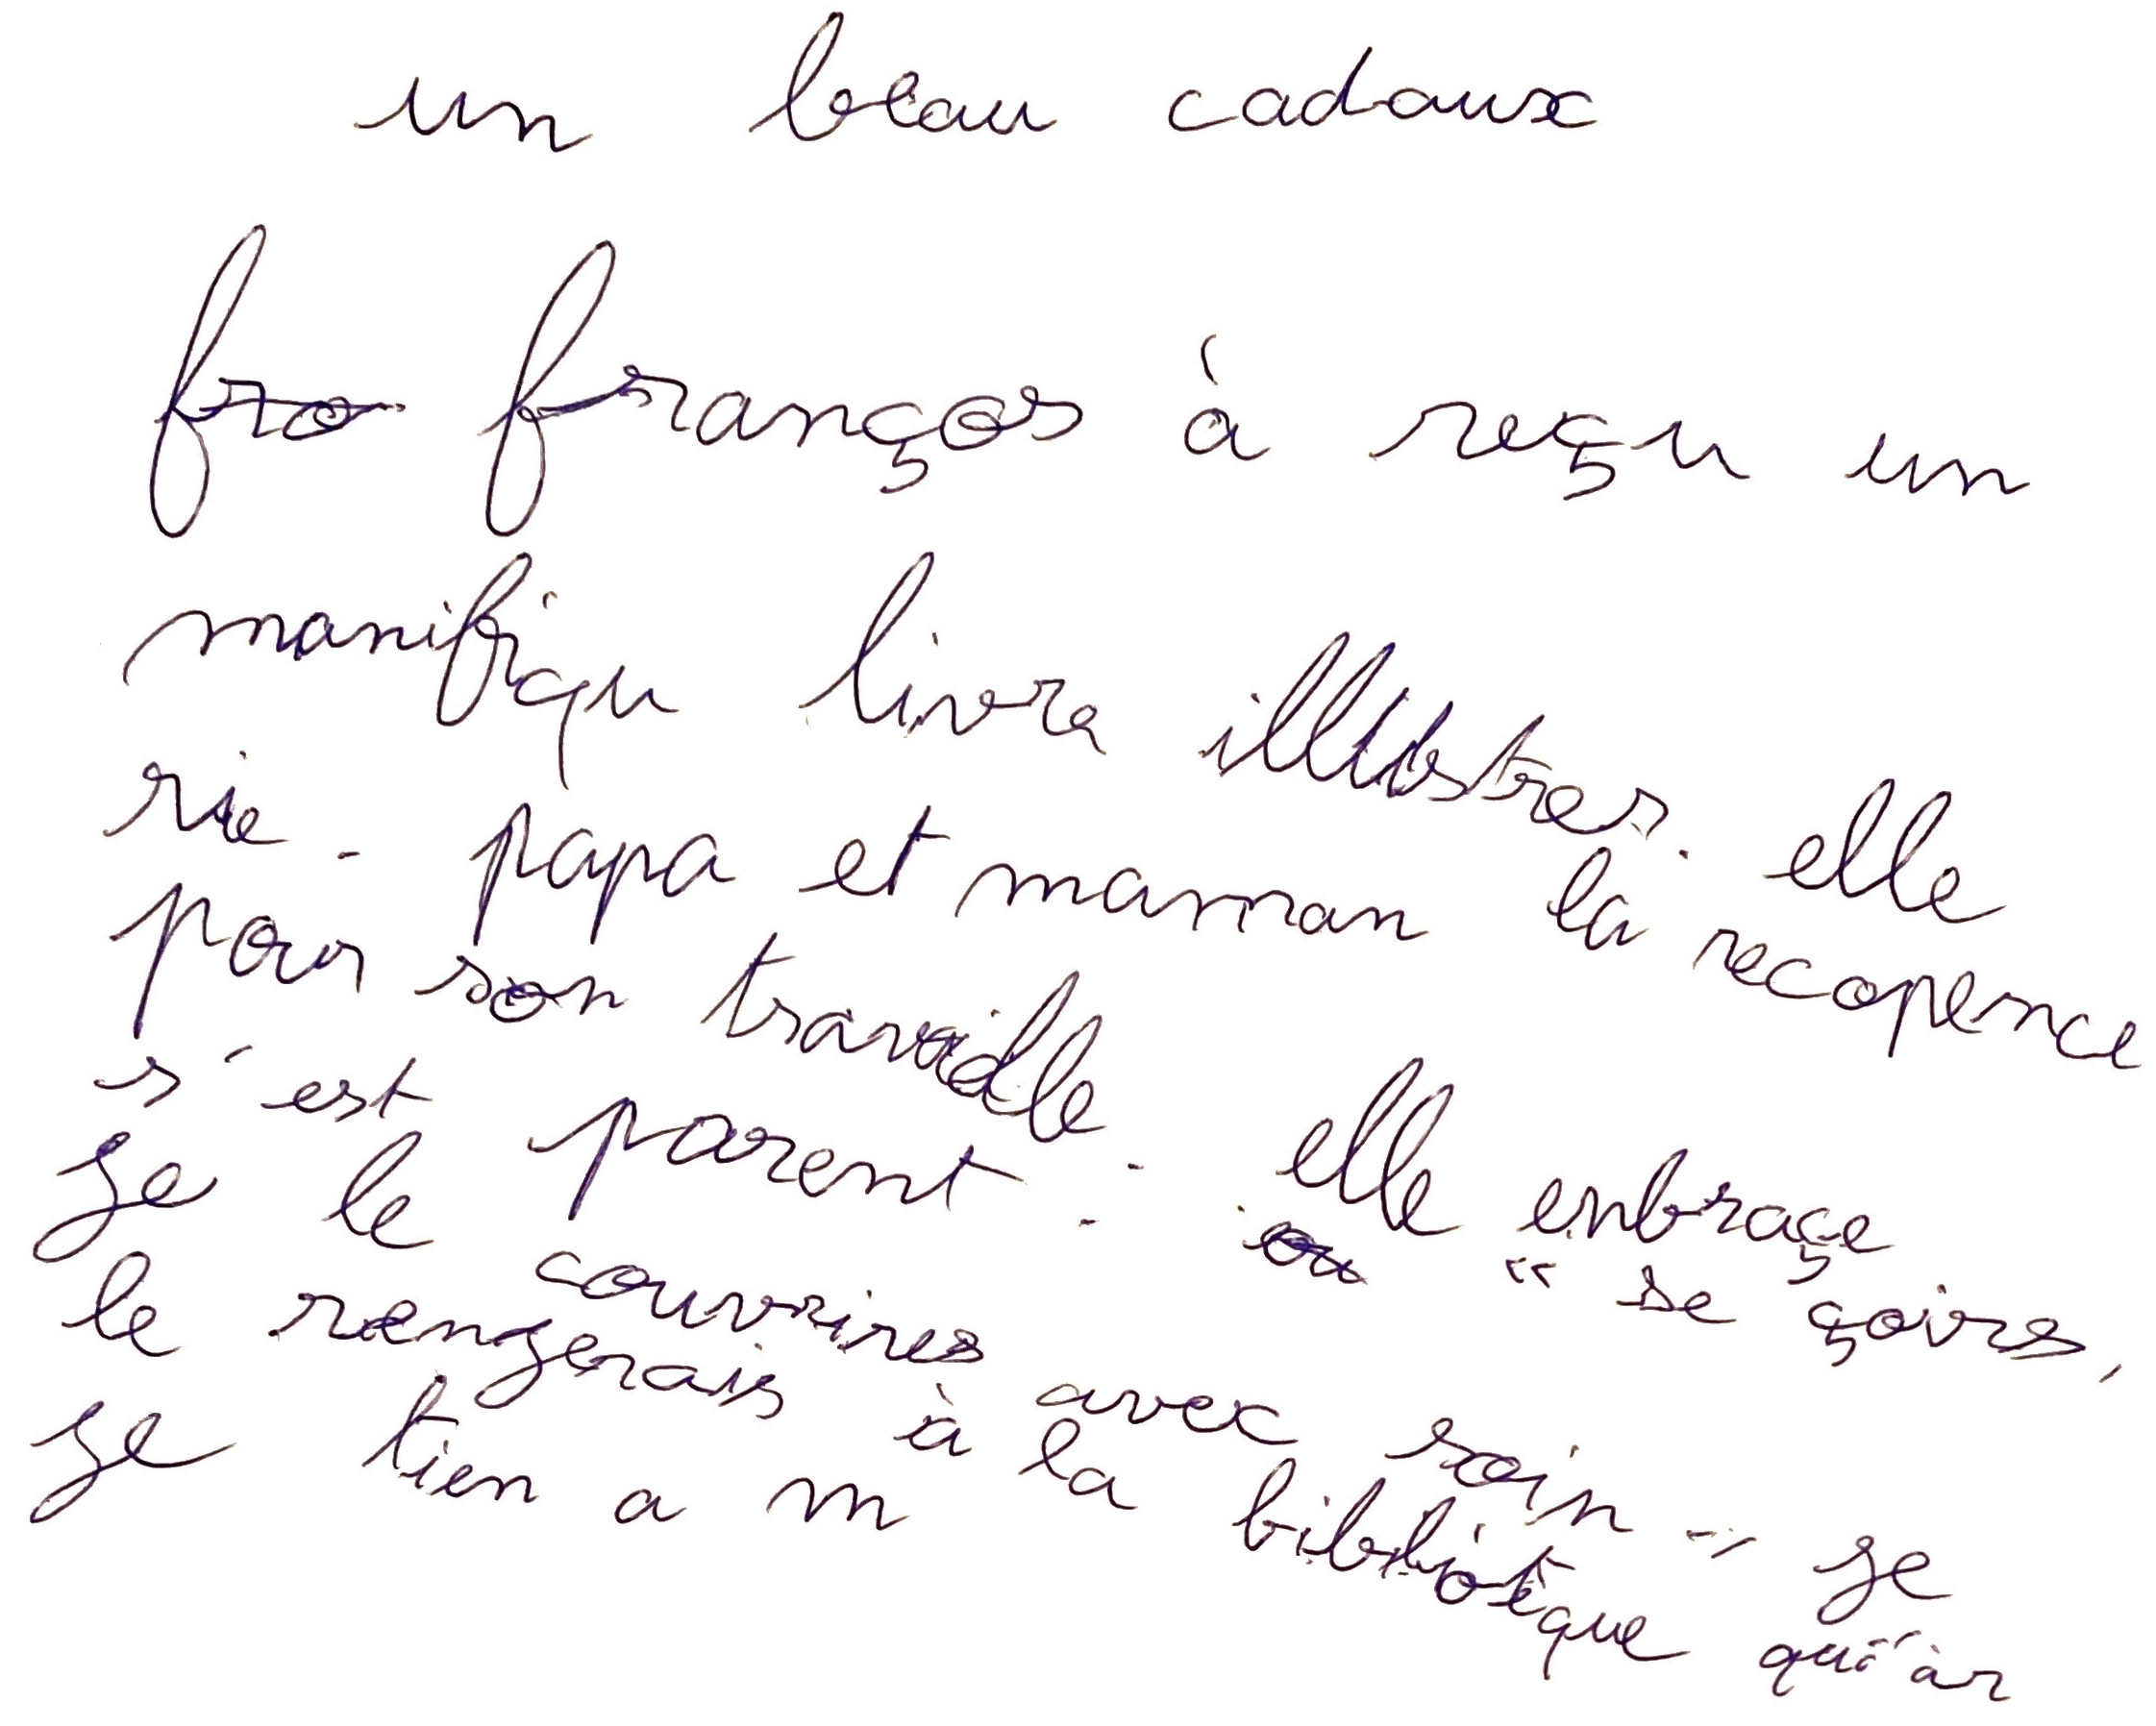 un beau cadaux
franços à reçu un
manifiqu livre illustres. elle
rie. papa et maman la recopence
pour son travaille. elle enbraçe
s'est parent. "se çoires,
je le couvrires avec soin., je
le rengerais à la bibliotèque qu'ar
je tien a m